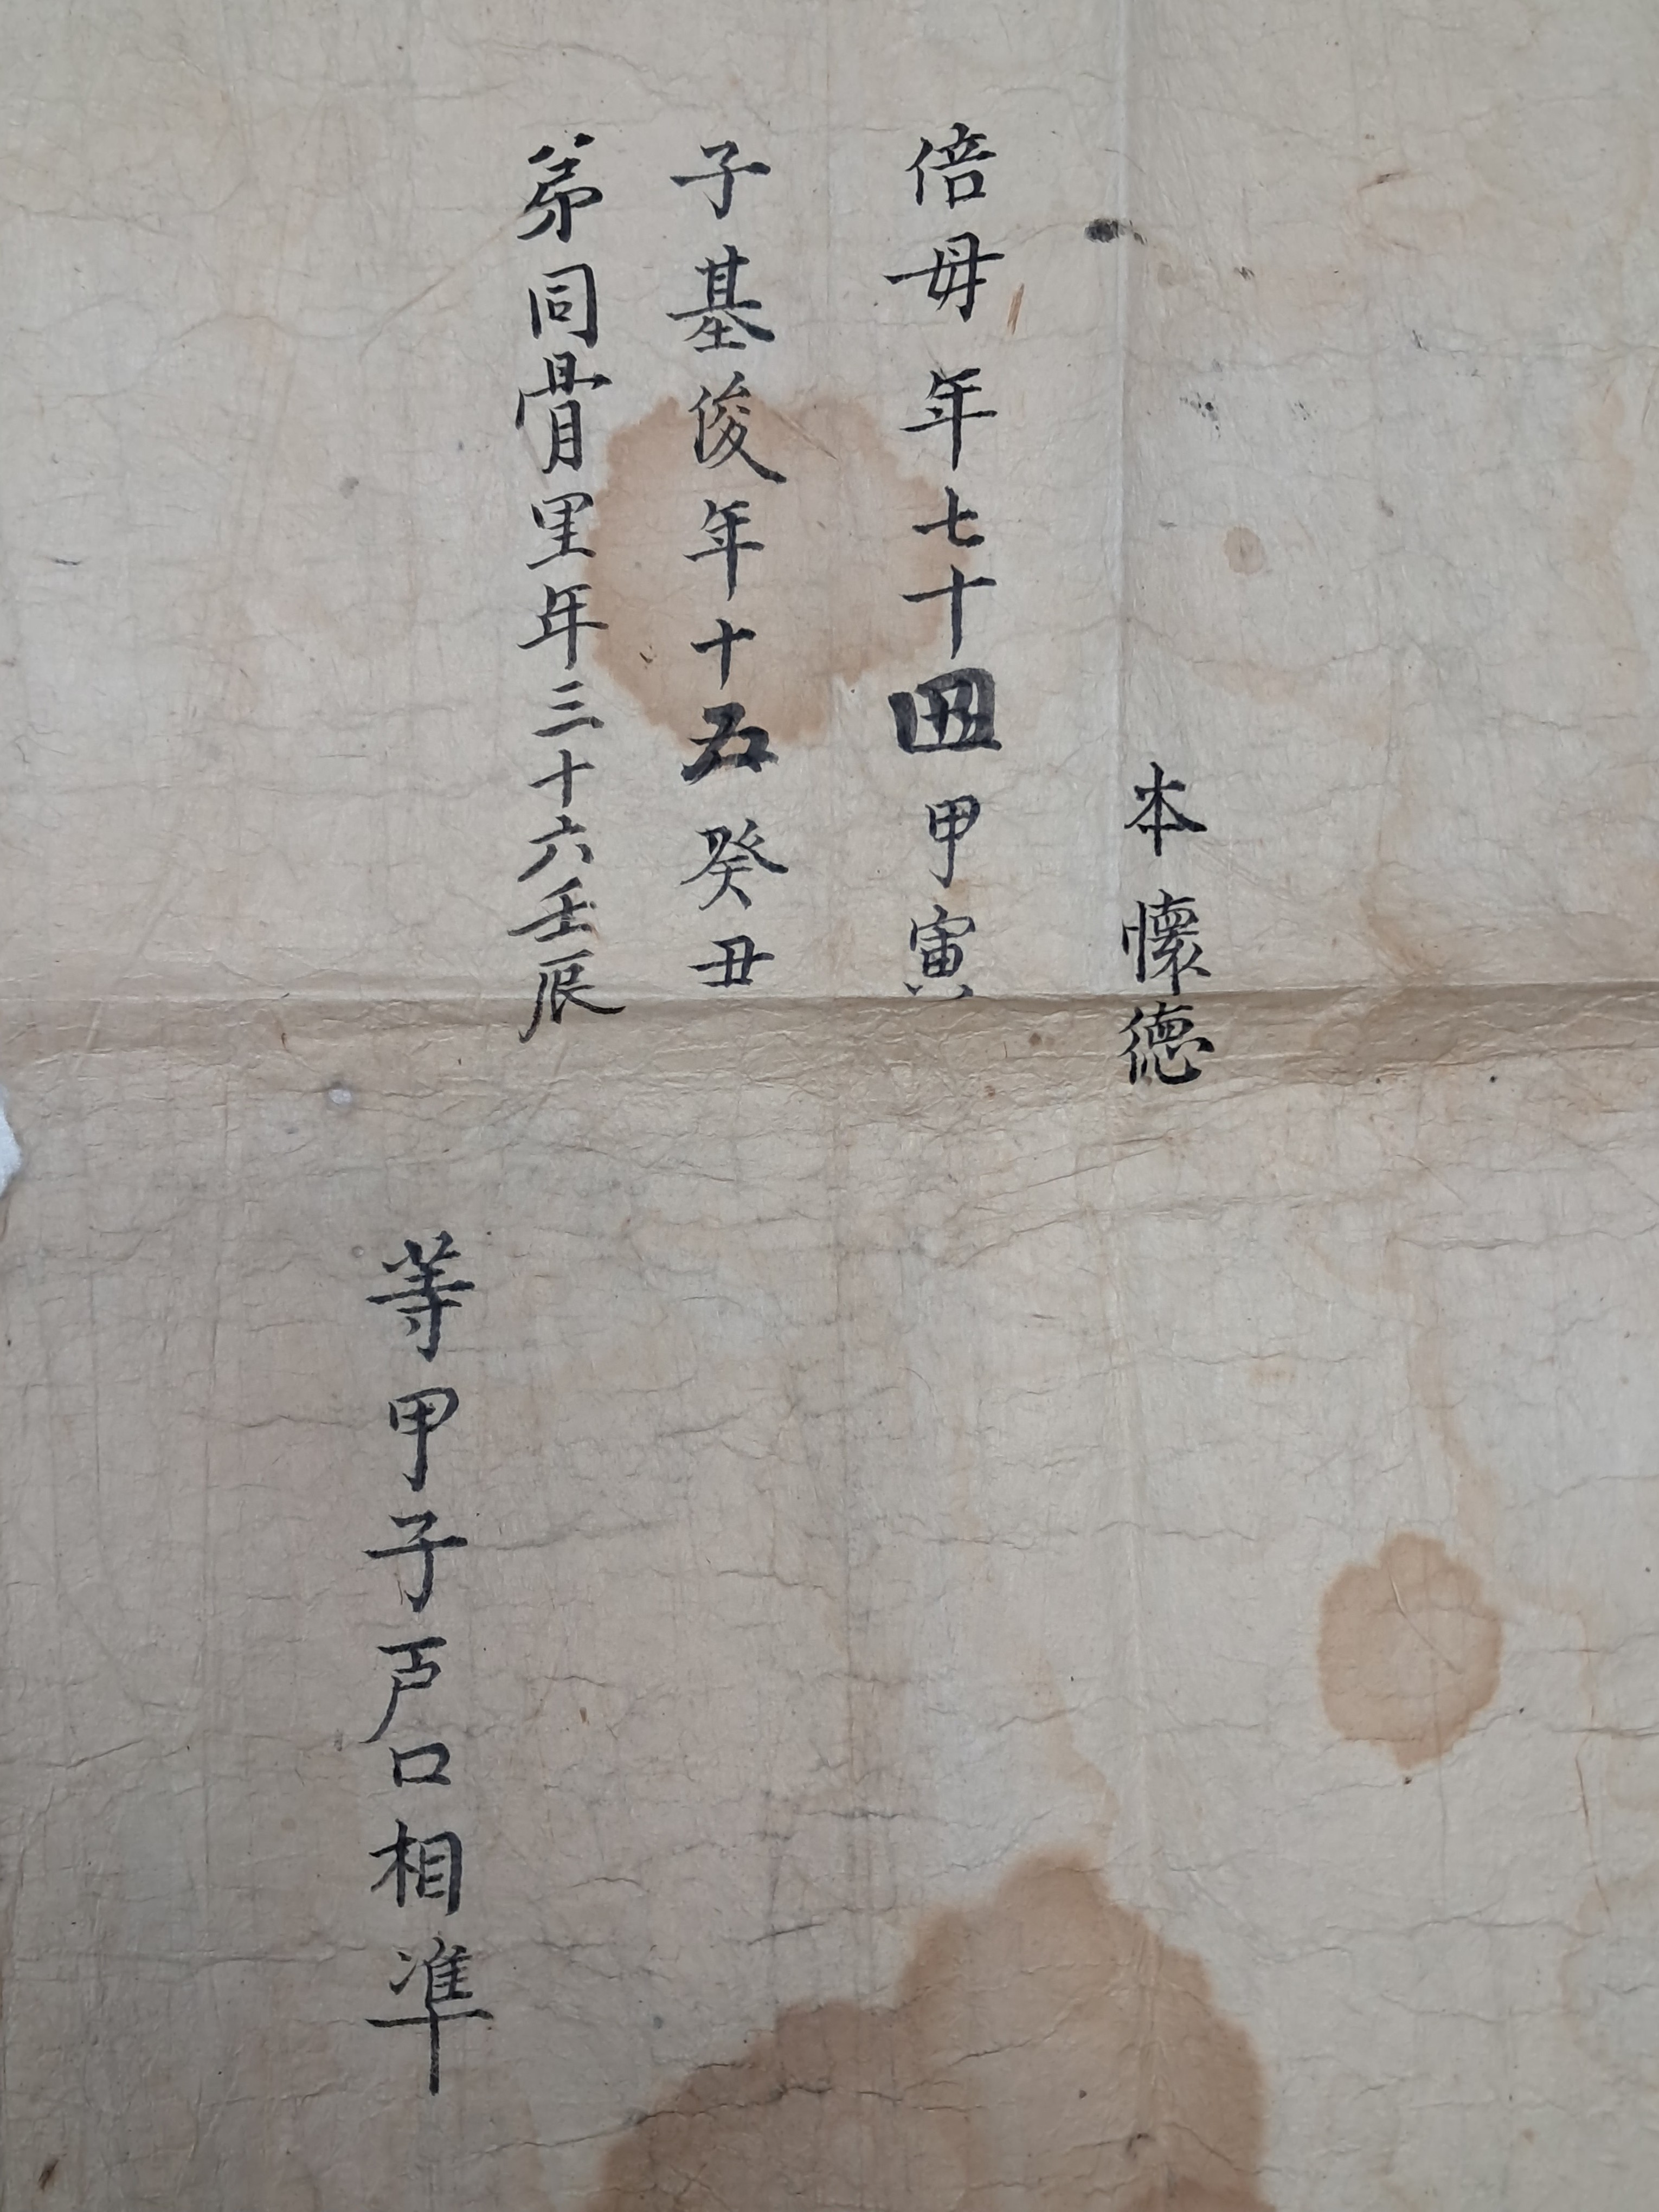 本懷德
倍母 年七十四甲寅
子基俊年十五癸丑
弟同骨里年三十六壬辰
等甲子戶口相凖